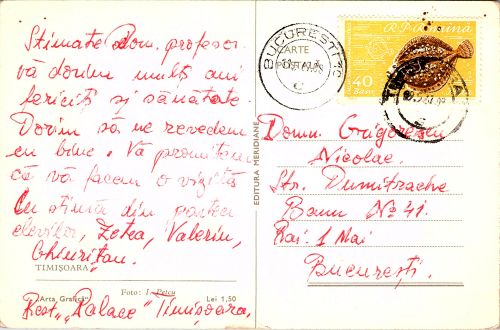 Stimate Dom. profesor
vă dorim mulți ani
fericiți și sănătate.
Dorim să ne revedem
cu bine. Vă promitem
că vă facem o vizită
Cu stimă din partea
elevilor, Zetea, Valeriu,
Ghiurițan.
TIMIȘOARA
Foto: I. Petcu
"Arta Grafică" Lei 1,50
Rest. "Palace" Timișoara,
EDITURA MERIDIANE
CARTE
POȘTALĂ
BUCUREȘTI
R.P. Romina
40
Bani
Domn. Grigorescu
Nicolae.
Str. Dumitrache
Banu No 41.
Rai: 1 Mai
București.